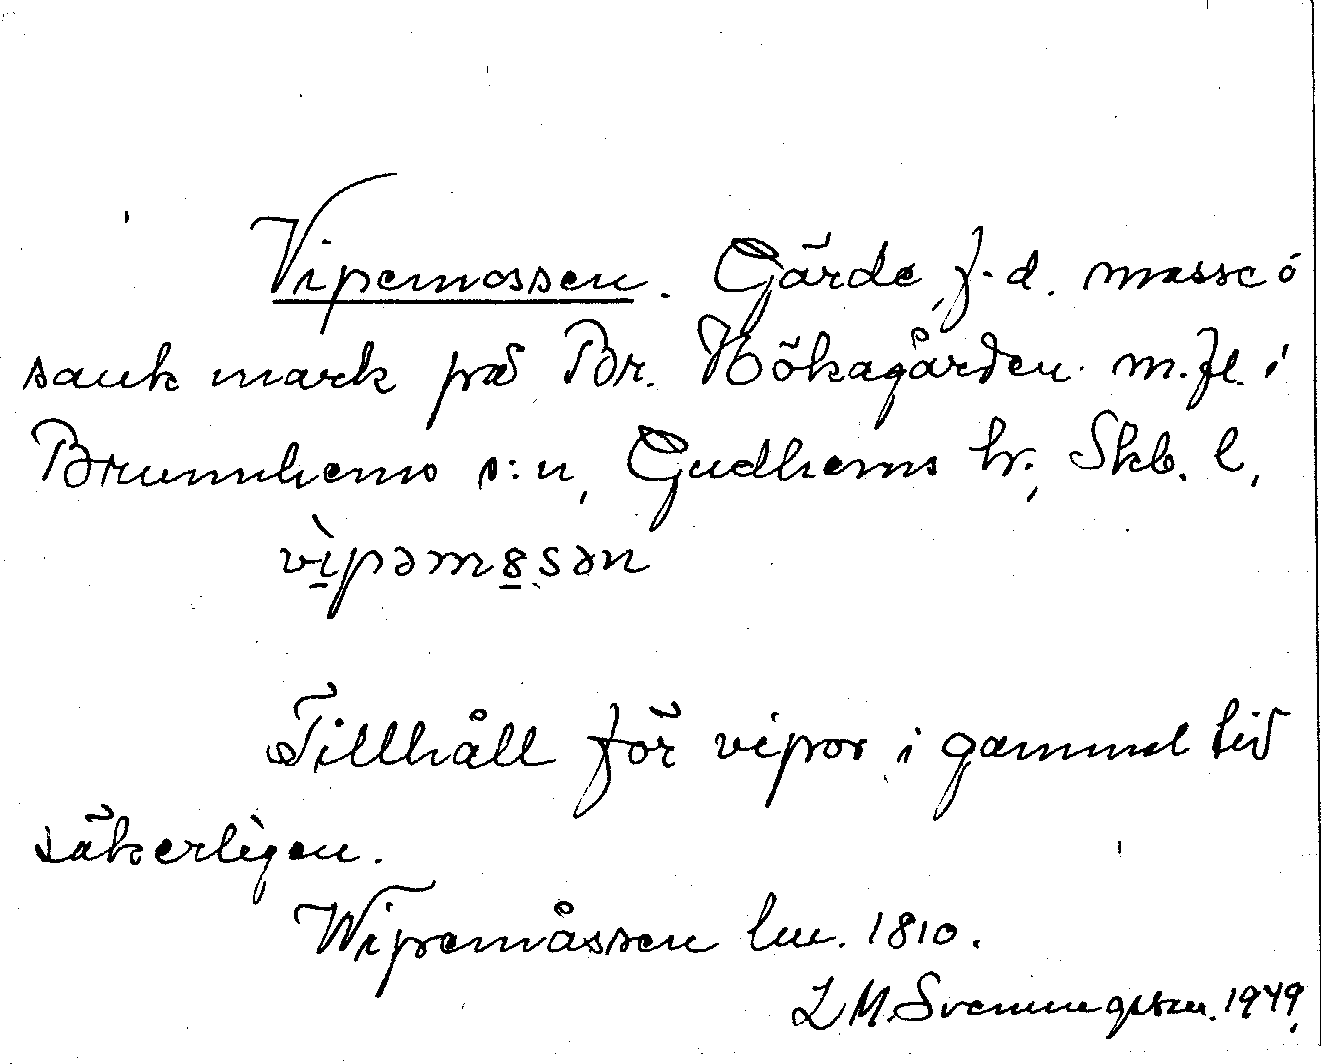 Vipemossen. Gärde, f.d. mosse o
sank mark på Br. Hökagården m.fl. i
Brunnhems s:n, Gudhems hr, Skb. l,
vìpəm8sən
Tillhåll för vipor i gammal tid
säkerligen.
Wipemåssen lm. 1810.
L M. Svenungsson. 1949.